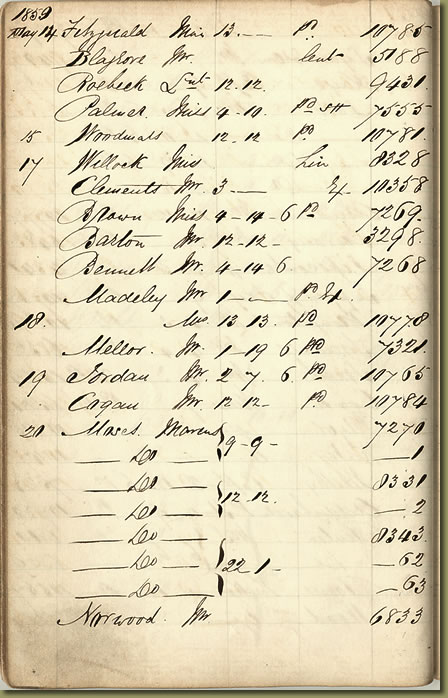 1859
May 14 Fitzgerald Miss 13. — Pd 10785
Blagrove Mr. lent 5188
Roebeck Lieut 12. 12. 9431.
Palmer. Miss 4 - 10. Pd 7555
15 Woodmass 12. 12. Pd 10781.
17 Willock Miss 8328
Clements Mr. 3 — Ex 10358
Brown Miss 4 - 14 - 6 Pd 7269.
Barton Mr. 12 - 12 - 3298.
Bennett Mr. 4 - 14 6. 7268
Madeley Mr 1 — Pd Ex.
18. Mrs 13 13. Pd 10778
Mellor. Mr. 1 - 19 6 Pd 7321.
19 Jordan Mr. 2 7. 6 Pd 10765
Cogan Mr. 12 12 - Pd 10784
20 Moses. Marcus 9 - 9 - 7270
— Do — — 1
— Do — 12 - 12. 8331
— Do — — 2
— Do — 8343.
— Do — 22 1 - — 62
— Do — — 63
Norwood. Mr 6833